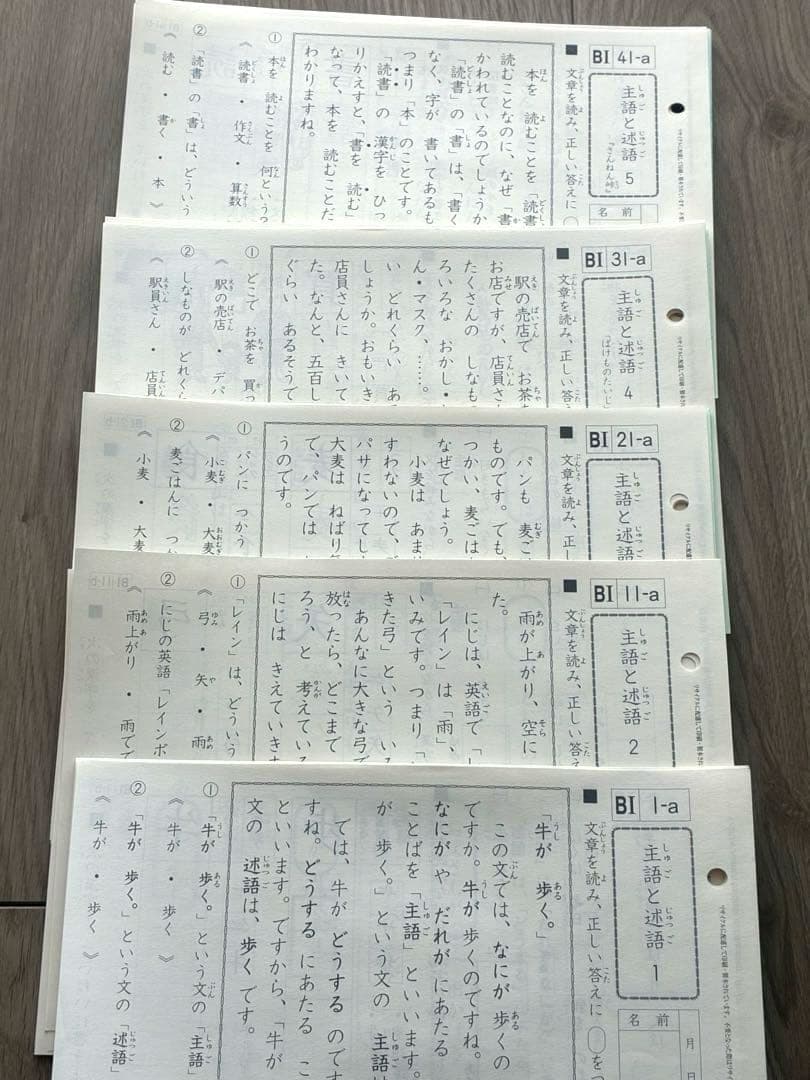 BI 41-a
主語と述語 5
『さんねん峠』
名前
■ 文章を読み、正しい答えに
本を 読むことを 「読書
読むことなのに、なぜ 「書
かわれているのでしょうか
「読書」の 「書」は、「書く
なく、字が 書いてあるも
つまり 「本」のことです。
「読書」の 漢字を ひっ
りかえすと、「書を 読む」
なって、本を 読むことだ
わかりますね。
① 本を 読むことを 何というっ
《 読書 ・ 作文 ・ 算数
② 「読書」の 「書」は、どういう
《 読む ・ 書く ・ 本 》
BI 31-a
主語と述語 4
『ばけものたいじ』
■ 文章を読み、正しい答
駅の売店で お茶を
お店ですが、店員さ
たくさんの しなもの
ろいろな おかし・
ん・マスク、……。
い どれくらい あ
しょうか。おもいき
店員さんに きいて
た。なんと、五百し
ぐらい あるそうで
① どこで お茶を 買っ
《 駅の売店 ・ デパ
② しなものが どれくら
《 駅員さん ・ 店員
BI 21-a
主語と述語
■ 文章を読み、正し
パンも 麦ご
ものです。でも、
つかい、麦ごは
なぜでしょう。
小麦は あま
すわないので、
パサになってし
大麦は ねばり
で、パンでは
うのです。
① パンに つかう
《 小麦 ・ 大麦
② 麦ごはんに つか
《 小麦 ・ 大麦
BI 11-a
主語と述語 2
■ 文章を読み、正しい答え
雨が上がり、空に
た。
にじは、英語で 「レ
「レイン」は 「雨」、
いみです。つまり、「
きた弓」という い
あんなに大きな弓で
放ったら、どこまで
ろう、と 考えている
にじは きえていきま
① 「レイン」は、どういう
《 弓 ・ 矢 ・ 雨
② にじの英語 「レインボ
《 雨上がり ・ 雨でで
BI 1-a
主語と述語 1
名前
月
日
■ 文章を読み、正しい答えに ◯をつ
「牛が 歩く。」
この文では、なにが 歩くの
ですか。牛が 歩くのですね。
なにがや だれが にあたる
ことばを 「主語」といいます。
が 歩く。」という文の 主語は
では、牛が どうする のです
すね。どうする にあたる こ
といいます。ですから、「牛が
文の 述語は、歩く です。
① 「牛が 歩く。」という文の 「主語」
《 牛が ・ 歩く 》
② 「牛が 歩く。」という文の 「述語」
《 牛が ・ 歩く 》